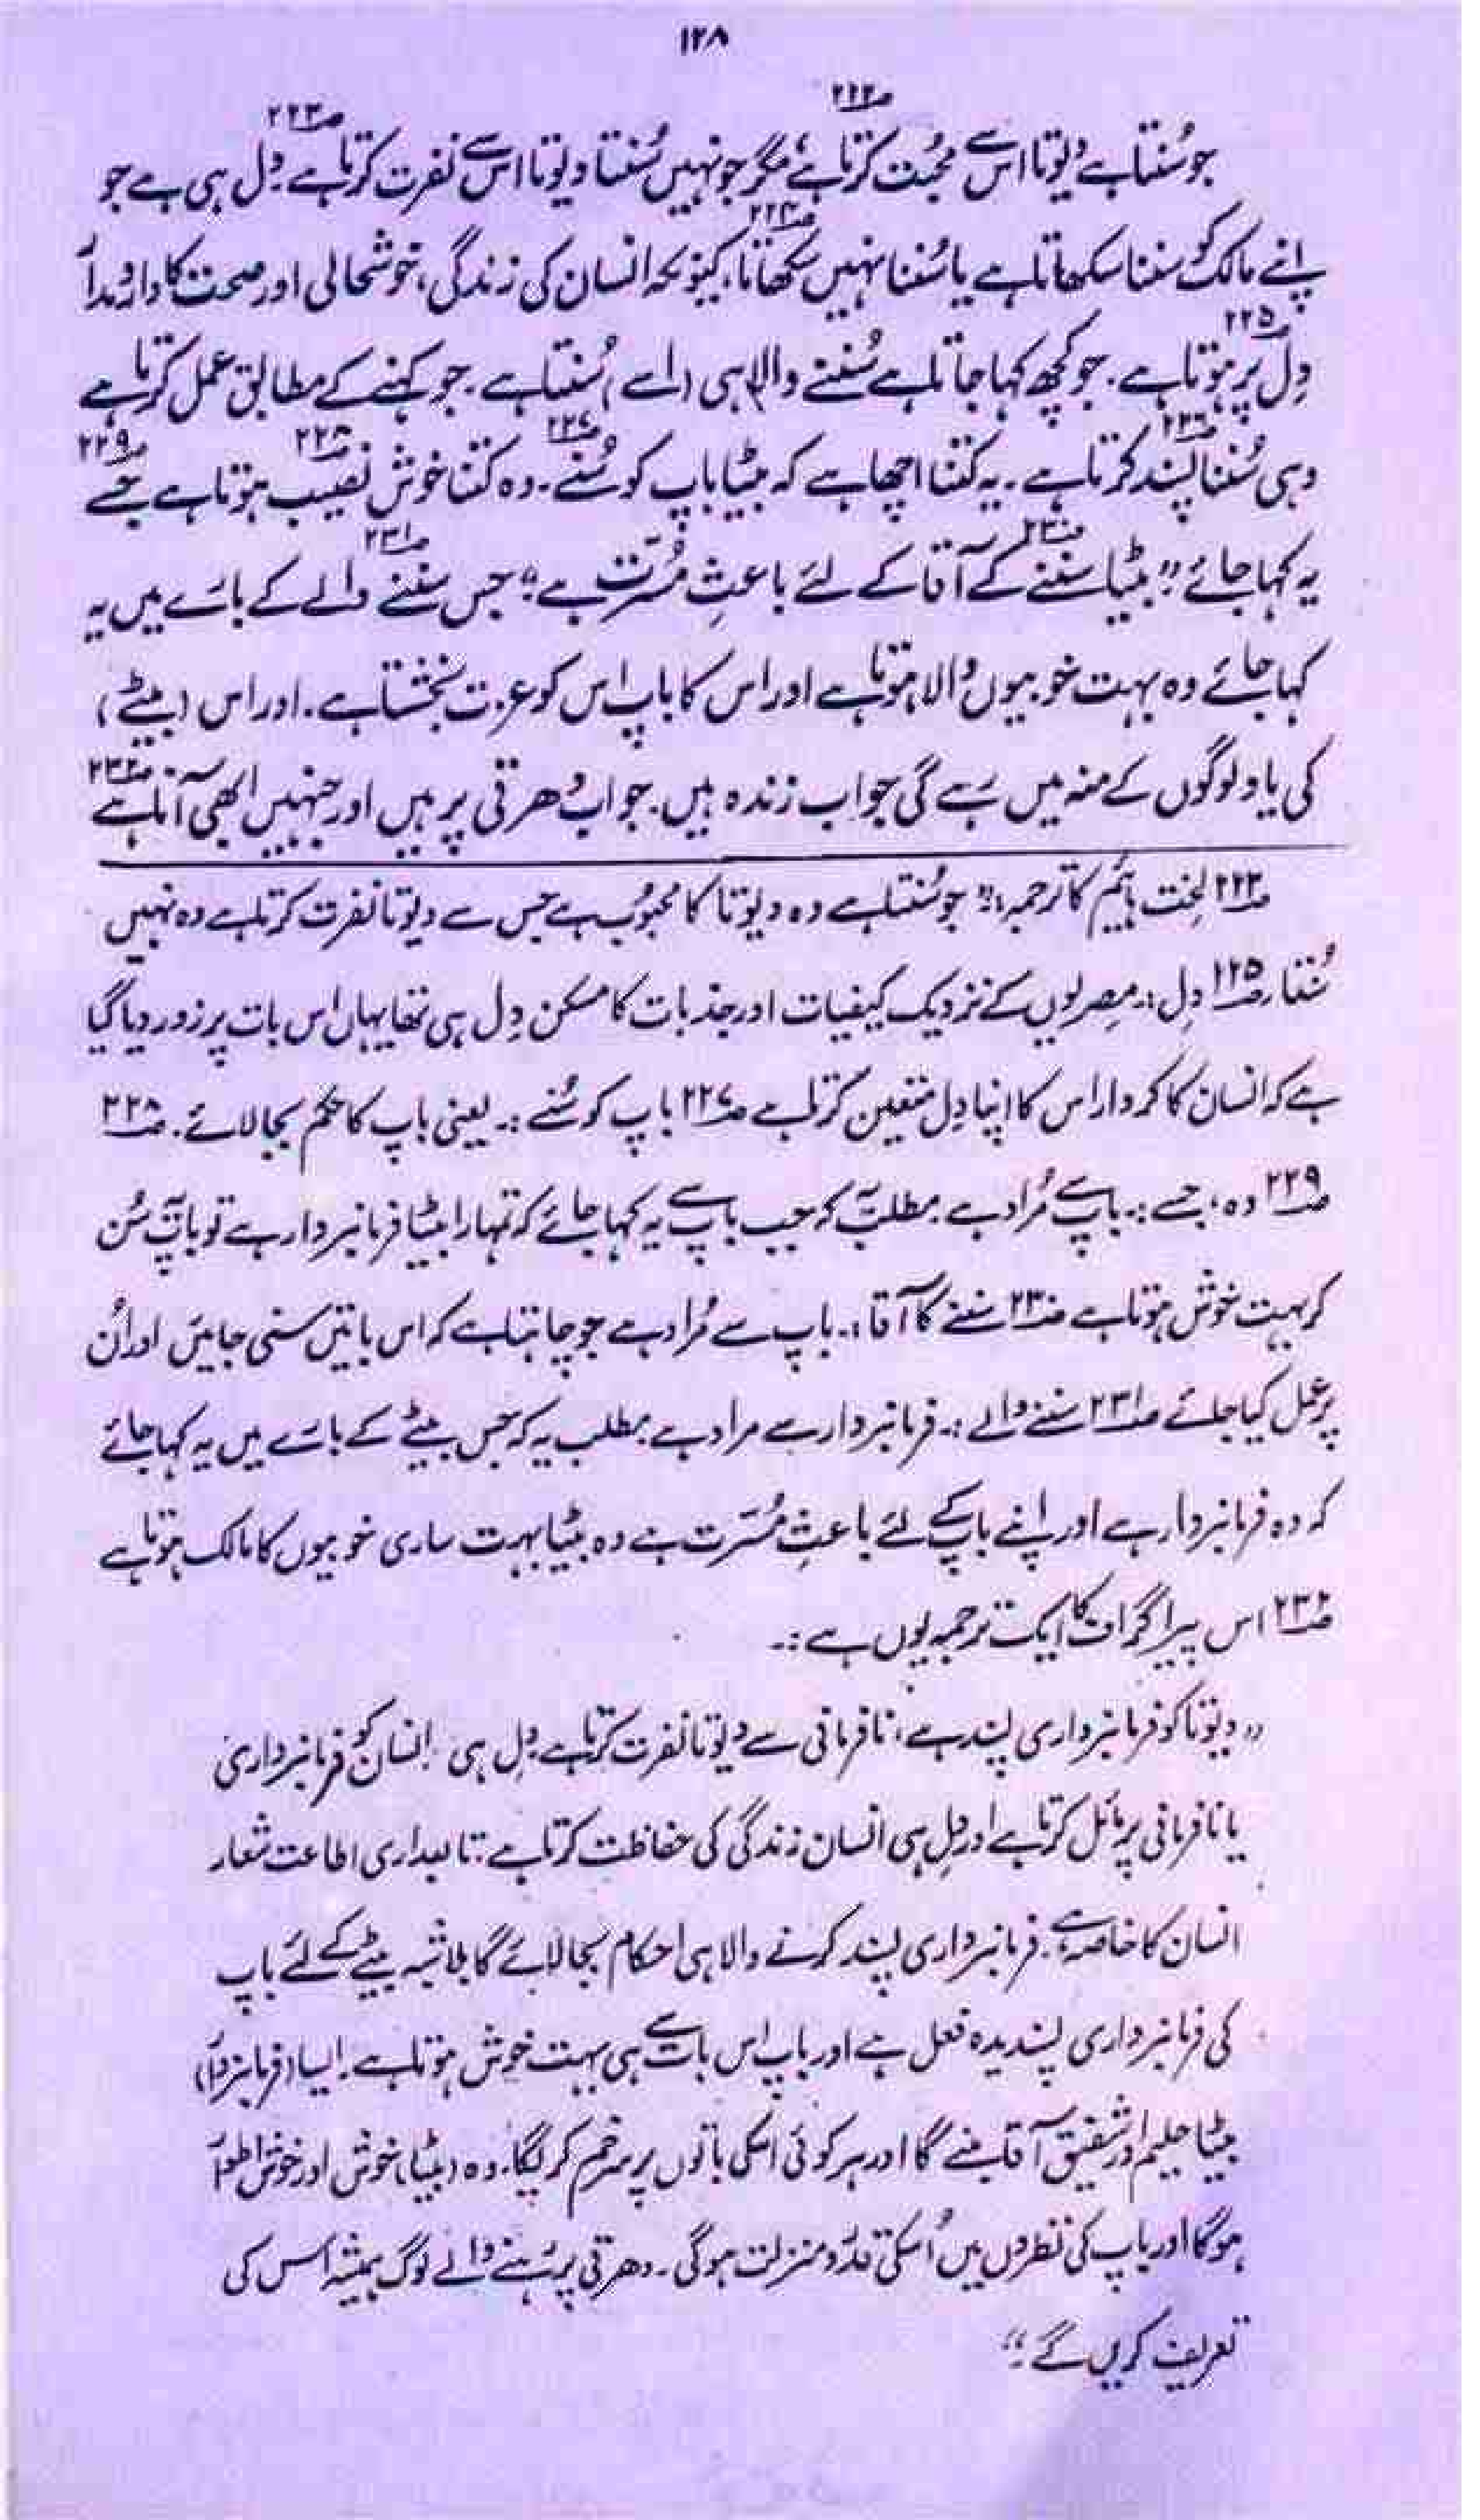 ۱۲۸
۲۲۲ ۲۲۳
جو سُنتا ہے دیوتا اس سے محبت کرتا ہے، مگر جو نہیں سُنتا دیوتا اس سے نفرت کرتا ہے۔ دل ہی ہے جو
۲۲۴
اپنے مالک کو سننا سکھاتا ہے یا سُننا نہیں سکھاتا، کیونکہ انسان کی زندگی، خوشحالی اور صحت کا دارومدار
۲۲۵
دِل پر ہوتا ہے۔ جو کچھ کہا جاتا ہے سُننے والا ہی (اسے) سُنتا ہے۔ جو کہنے کے مطابق عمل کرتا ہے
۲۲۶ ۲۲۷ ۲۲۸ ۲۲۹
وہی سُننا پسند کرتا ہے۔ یہ کتنا اچھا ہے کہ بیٹا باپ کو سُنے۔ وہ کتنا خوش نصیب ہوتا ہے جسے
۲۳۰ ۲۳۱
یہ کہا جائے "بیٹا سننے کے آقا کے لئے باعثِ مُسرّت ہے" جس سننے والے کے بارے میں یہ
کہا جائے وہ بہت خوبیوں والا ہوتا ہے اور اس کا باپ اس کو عزت بخشتا ہے۔ اور اس (بیٹے)
۲۳۲
کی یاد لوگوں کے منہ میں رہے گی جو اب زندہ ہیں۔ جو اب دھرتی پر ہیں اور جنہیں ابھی آنا ہے
۲۲۳ لخت ہائیم کا ترجمہ:۔ "جو سُنتا ہے وہ دیوتا کا محبوب ہے جس سے دیوتا نفرت کرتا ہے وہ نہیں
سُنتا ۲۲۵ دِل:۔ مصریوں کے نزدیک کیفیات اور جذبات کا مسکن دِل ہی تھا یہاں اس بات پر زور دیا گیا
ہے کہ انسان کا کردار اس کا اپنا دِل متعین کرتا ہے ۲۲۷ باپ کو سُنے:۔ یعنی باپ کا حکم بجا لائے۔ ۲۲۸
۲۲۹ وہ، جسے:۔ باپ سے مُراد ہے۔ مطلب یہ کہ جب باپ سے یہ کہا جائے کہ تمہارا بیٹا فرمانبردار ہے تو باپ یہ سُن
کر بہت خوش ہوتا ہے ۲۳۰ سننے کا آقا:۔ باپ سے مُراد ہے جو چاہتا ہے کہ اس باتیں سنی جائیں اور اُن
پر عمل کیا جائے ۲۳۱ سننے والے:۔ فرمانبردار سے مراد ہے۔ مطلب یہ کہ جس بیٹے کے بارے میں یہ کہا جائے
کہ وہ فرمانبردار ہے اور اپنے باپ کے لئے باعثِ مُسرّت ہے وہ بیٹا بہت ساری خوبیوں کا مالک ہوتا ہے
۲۳۲ اس پیراگراف کا ایک ترجمہ یوں ہے:۔
"دیوتا کو فرمانبرداری پسند ہے، نافرمانی سے دیوتا نفرت کرتا ہے۔ دِل ہی انسان کو فرمانبرداری
یا نافرمانی پر مائل کرتا ہے اور دِل ہی انسان زندگی کی حفاظت کرتا ہے۔ تابعداری اطاعت شعار
انسان کا خاصہ ہے۔ فرمانبرداری پسند کرنے والا ہی احکام بجا لائے گا بلاشبہ بیٹے کے لئے باپ
کی فرمانبرداری پسندیدہ فعل ہے اور باپ اس بات سے ہی بہت خوش ہوتا ہے۔ ایسا (فرمانبردار)
بیٹا حلیم اور شفیق آقا بنے گا اور ہر کوئی اسکی باتوں پر سرخم کر لیگا۔ وہ (بیٹا) خوش اور خوش اطوار
ہوگا اور باپ کی نظروں میں اُسکی قدر و منزلت ہوگی۔ دھرتی پر رہنے والے لوگ ہمیشہ اس کی
تعریف کریں گے"